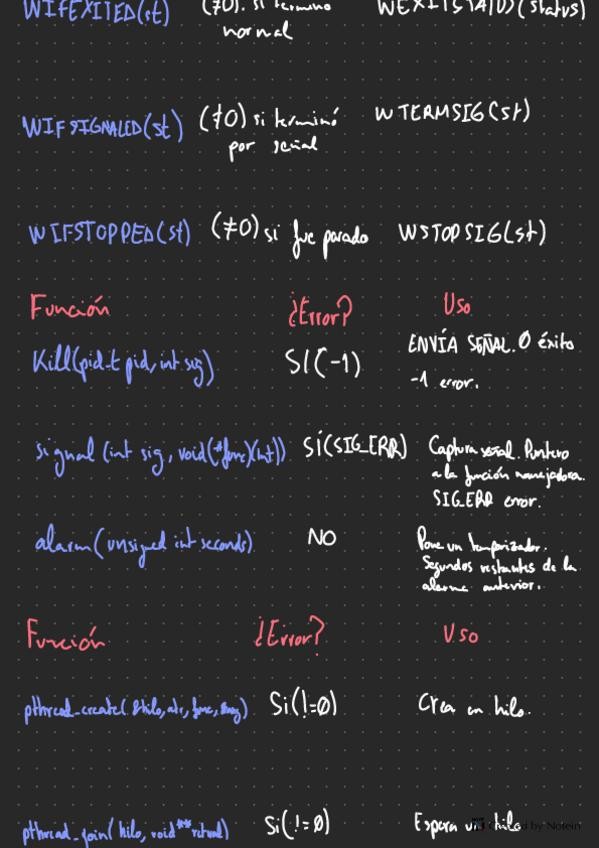 WIFEXITED(st) (≠0). si terminó WEXITSTATUS(status)
normal
WIFSIGNALED(st) (≠0) si terminó WTERMSIG(st)
por señal
WIFSTOPPED(st) (≠0) si fue parado WSTOPSIG(st)
Función ¿Error? Uso
Kill(pid_t pid, int sig) SÍ(-1) ENVÍA SEÑAL. 0 éxito
-1 error.
signal (int sig, void(*func)(int)) SÍ(SIG_ERR) Captura señal. Puntero
a la función manejadora.
SIG_ERR error.
alarm(unsigned int seconds) NO Pone un temporizador.
Segundos restantes de la
alarma anterior.
Función ¿Error? Uso
pthread_create(&hilo, atr, func, &arg) Si(!=0) Crea un hilo.
pthread_join(hilo, void** retval) Si(!=0) Espera un hilo
by Notein